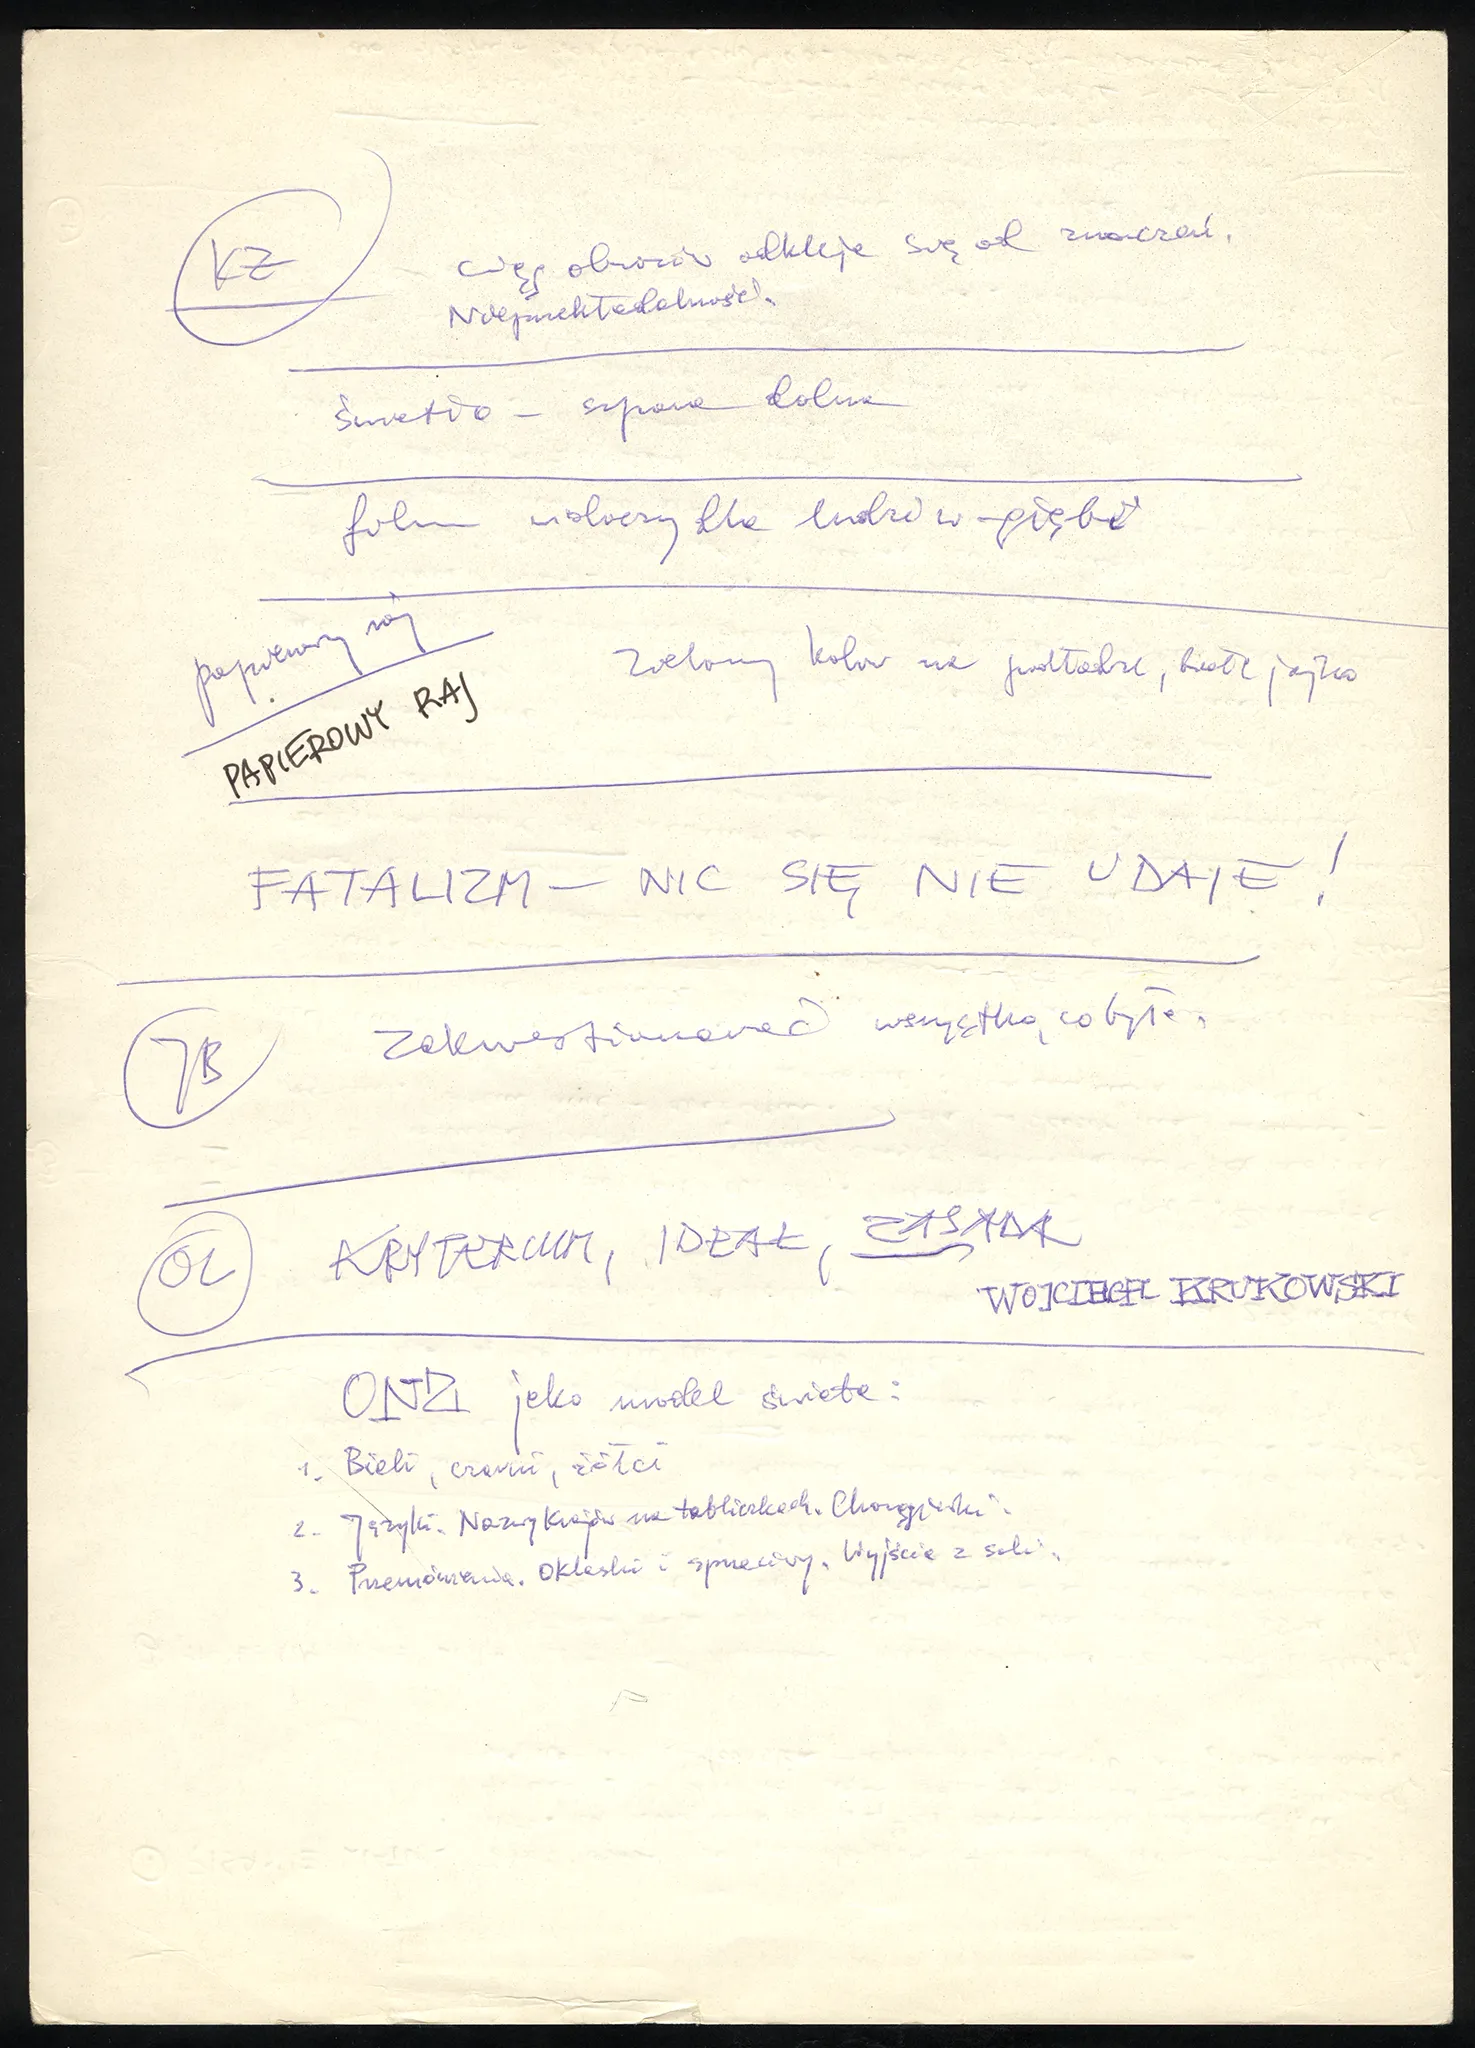 KZ
ciąg obrazów odkleja się od znaczeń.
Nieprzekładalność.
Światło – szpara dolna
film widoczny dla ludzi w głębi
papierowy raj
Zielony kolor na podkładzie, białe jajko
PAPIEROWY RAJ
FATALIZM – NIC SIĘ NIE UDAJE!
JB
Zakwestionować wszystko, co było.
OL
KRYTERIUM, IDEAŁ, ZASADA
WOJCIECH KRUKOWSKI
ONZ jako model świata:
1. Bieli, czarni, żółci
2. Języki. Nazwy krajów na tabliczkach. Chorągiewki.
3. Przemówienia. Oklaski i sprzeciwy. Wyjścia z sali.